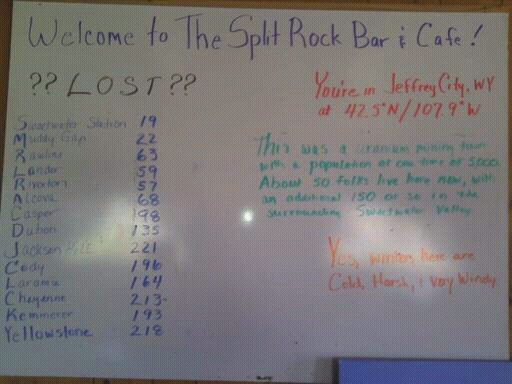 Welcome to The Split Rock Bar & Cafe!
?? LOST ??
You're in Jeffrey City, WY
at 42.5°N/107.9°W
Sweetwater Station 19
Muddy Gap 22
Rawlins 63
Lander 59
Riverton 57
Alcova 68
Casper 98
Dubois 135
Jackson Hole 221
Cody 196
Laramie 164
Cheyenne 213
Kemmerer 193
Yellowstone 218
This was a uranium mining town
with a population at one time of 5000.
About 50 folks live here now, with
an additional 150 or so in the
surrounding Sweetwater Valley
Yes, winters here are
Cold, Harsh, & Very Windy.